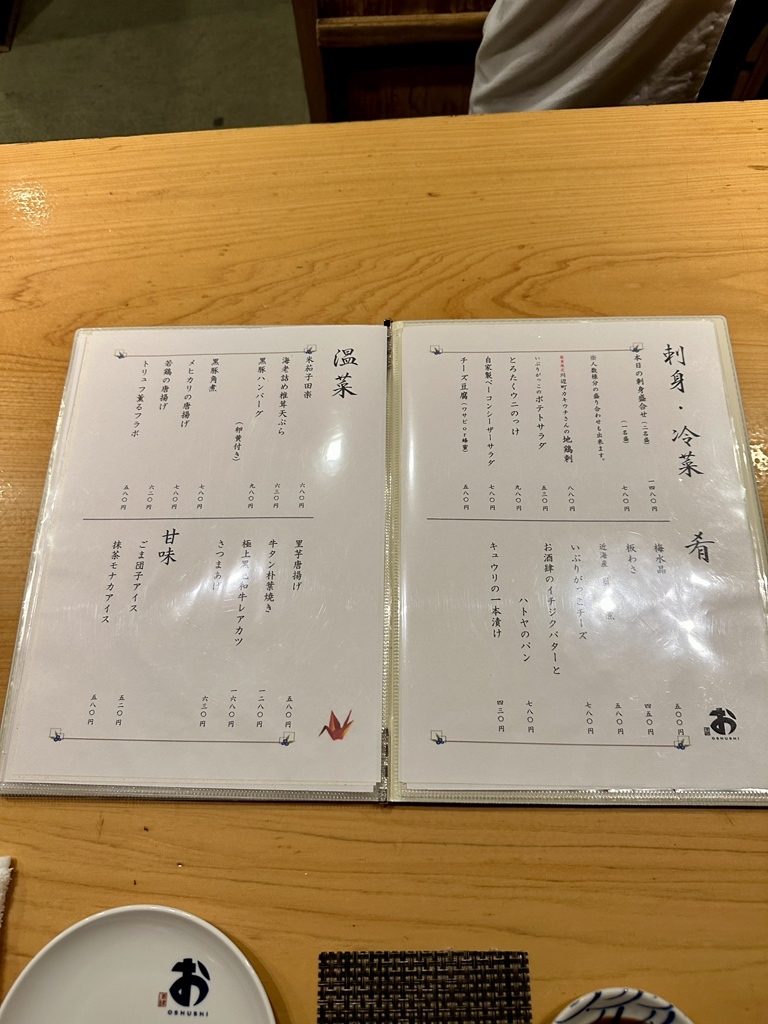 刺身・冷菜
本日の刺身盛合せ(二名盛)
一四八〇円
(一名盛)
七八〇円
※人数様分の盛り合わせも出来ます。
川辺町カキウチさんの地鶏刺
八八〇円
いぶりがっこのポテトサラダ
五三〇円
とろたくウニのっけ
九八〇円
自家製ベーコンシーザーサラダ
七八〇円
チーズ豆腐(ワサビor蜂蜜)
五八〇円
肴
梅水晶
五〇〇円
板わさ
四五〇円
近海産
五八〇円
いぶりがっこチーズ
七八〇円
お酒肆のイチジクバターと
ハトヤのパン
七八〇円
キュウリの一本漬け
四三〇円
お
OSHUSHI
温菜
米茄子田楽
六八〇円
海老詰め椎茸天ぷら
六三〇円
黒豚ハンバーグ
(卵黄付き)
九八〇円
黒豚角煮
七八〇円
メヒカリの唐揚げ
七八〇円
若鶏の唐揚げ
六二〇円
トリュフ薫るフラポ
五八〇円
里芋唐揚げ
五八〇円
牛タン朴葉焼き
一二八〇円
極上黒毛和牛レアカツ
一六八〇円
さつまあげ
六三〇円
甘味
ごま団子アイス
五二〇円
抹茶モナカアイス
五八〇円
お
OSHUSHI